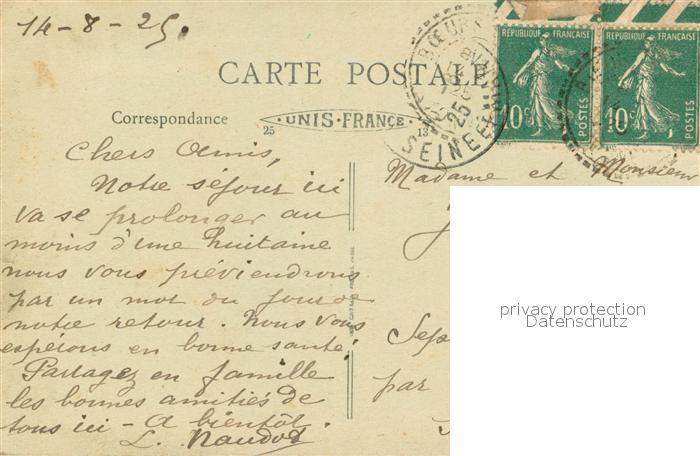 14-8-25.
RÉPUBLIQUE FRANÇAISE
RÉPUBLIQUE FRANÇAISE
10c POSTES
10c POSTES
CARTE POSTALE
25
SEINE ET
Correspondance
UNIS-FRANCE
25
13
Chers Amis,
Notre séjour ici
va se prolonger au
moins d'une huitaine
nous vous préviendrons
par un mot du jour de
notre retour. Nous vous
espérons en bonne santé.
Partagez en famille
les bonnes amitiés de
tous ici - A bientôt.
L. Naudot
Madame et Monsieur
par
privacy protection
Datenschutz